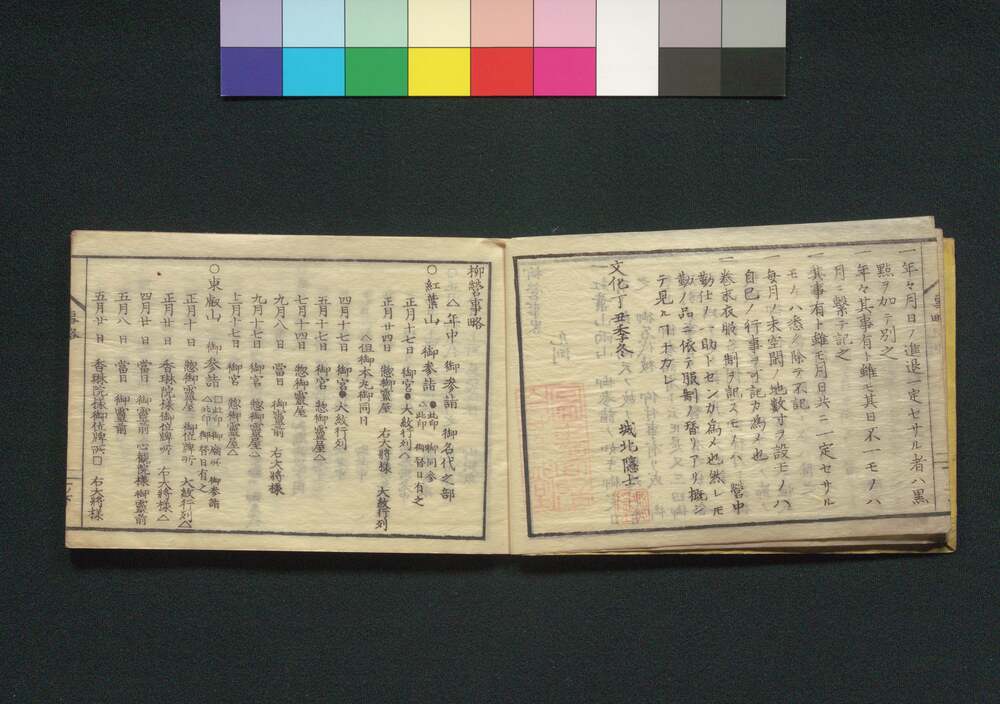 一年々月日ノ進退一定セサル者ハ黒
點ヲ加テ別之
一年々其事有ト雖モ其日不一モノハ
月ニ繋テ記之
一其事有ト雖モ月日共ニ一定セサル
モノハ悉ク除テ不記
一毎月ノ末空間ノ地数寸ヲ設モノハ
自己ノ行事ヲ記カ為メ也
一巻末衣服ノ制ヲ記スモノハ 營中
勤仕ノ一助トセンカ為メ也然レモ
勤ノ品ニ依テ服制ノ替リアリ概シ
テ見ルコトナカレ
文化丁丑季冬 城北隱士
柳營事略
△年中 御参詣 御名代之部
○紅葉山 御参詣 ●此印 御同参
△此印 御替日有之
正月十七日 御宮●大紋行列△
正月廿四日 惣御靈屋 右大將様 大紋行列
四月十七日 御宮●大紋行列
△但御本丸御同日
五月十七日 御宮 惣御靈屋△
七月十四日 惣御靈屋
九月八日 當日 御靈前 右大將様
九月十七日 御宮 惣御靈屋△
十二月十七日 御宮 惣御靈屋△
○東叡山 御参詣 □此印 御廟所 御参詣
△此印 御替日有之
正月十日 當日 惣御靈屋 御位牌所 大紋行列△
正月廿日 香琳院様御位牌所 右大將様△
四月廿日 當日 御靈前 心観院様御靈前
五月八日 當日 御靈前
五月廿日 香琳院様御位牌所□ 右大將様
事略